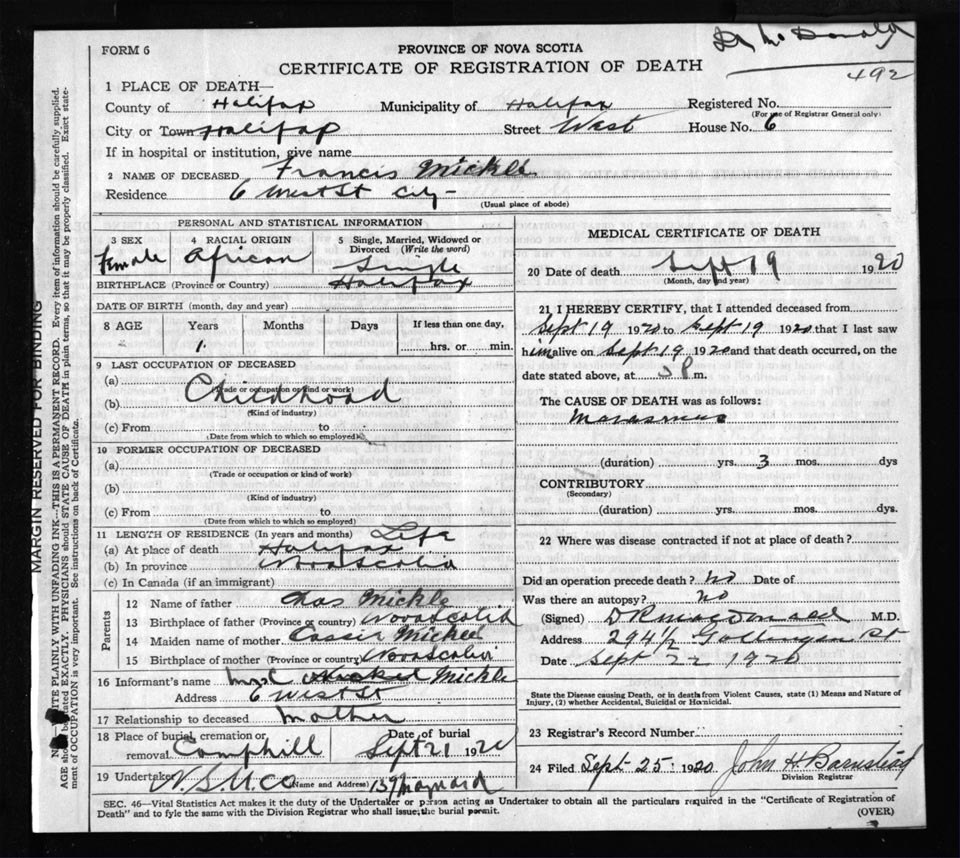 Dr McDonald
492
FORM 6
PROVINCE OF NOVA SCOTIA
CERTIFICATE OF REGISTRATION OF DEATH
1 PLACE OF DEATH—
County of Halifax Municipality of Halifax Registered No.
(For use of Registrar General only)
City or Town Halifax Street West House No. 6
If in hospital or institution, give name
2 NAME OF DECEASED Francis Mickle
Residence 6 West St City -
(Usual place of abode)
PERSONAL AND STATISTICAL INFORMATION
3 SEX Female
4 RACIAL ORIGIN African
5 Single, Married, Widowed or Divorced (Write the word)
Single
BIRTHPLACE (Province or Country) Halifax
DATE OF BIRTH (month, day and year)
8 AGE Years Months Days If less than one day,
1 hrs. or min.
9 LAST OCCUPATION OF DECEASED
(a)
(Trade or occupation or kind or work)
(b) Childhood
(Kind of industry)
(c) From to
(Date from which to which so employed)
10 FORMER OCCUPATION OF DECEASED
(a)
(Trade or occupation or kind of work)
(b)
(Kind of industry)
(c) From to
(Date from which to which so employed)
11 LENGTH OF RESIDENCE (In years and months) Life
(a) At place of death Halifax
(b) In province Nova Scotia
(c) In Canada (if an immigrant)
Parents
12 Name of father Chas Mickle
13 Birthplace of father (Province or country) Nova Scotia
14 Maiden name of mother Cassie Mickle
15 Birthplace of mother (Province or country) Nova Scotia
16 Informant's name Mrs C Mickle
Address 6 West St
17 Relationship to deceased Mother
18 Place of burial, cremation or removal Camphill
Date of burial Sept 21 1920
19 Undertaker N.S.U.Co (Name and Address) 137 Maynard
MEDICAL CERTIFICATE OF DEATH
20 Date of death Sept 19 1920
(Month, day and year)
21 I HEREBY CERTIFY, that I attended deceased from
Sept 19 1920 to Sept 19 1920 that I last saw
him alive on Sept 19 1920 and that death occurred, on the
date stated above, at P m.
The CAUSE OF DEATH was as follows:
Marasmus
(duration) yrs. 3 mos. dys
CONTRIBUTORY
(Secondary)
(duration) yrs. mos. dys.
22 Where was disease contracted if not at place of death?
Did an operation precede death? No Date of
Was there an autopsy? No
(Signed) D R MacDonald M.D.
Address 294½ Gottingen St
Date Sept 22 1920
State the Disease causing Death, or in death from Violent Causes, state (1) Means and Nature of
Injury, (2) whether Accidental, Suicidal or Homicidal.
23 Registrar's Record Number
24 Filed Sept 25 1920 John H Barnstead
Division Registrar
SEC. 46—Vital Statistics Act makes it the duty of the Undertaker or person acting as Undertaker to obtain all the particulars required in the "Certificate of Registration of
Death" and to fyle the same with the Division Registrar who shall issue the burial permit. (OVER)
MARGIN RESERVED FOR BINDING
WRITE PLAINLY WITH UNFADING INK—THIS IS A PERMANENT RECORD. Every item of information should be carefully supplied.
AGE should be stated EXACTLY. PHYSICIANS should STATE CAUSE OF DEATH in plain terms, so that it may be properly classified. Exact state-
ment of OCCUPATION is very important. See instructions on back of Certificate.